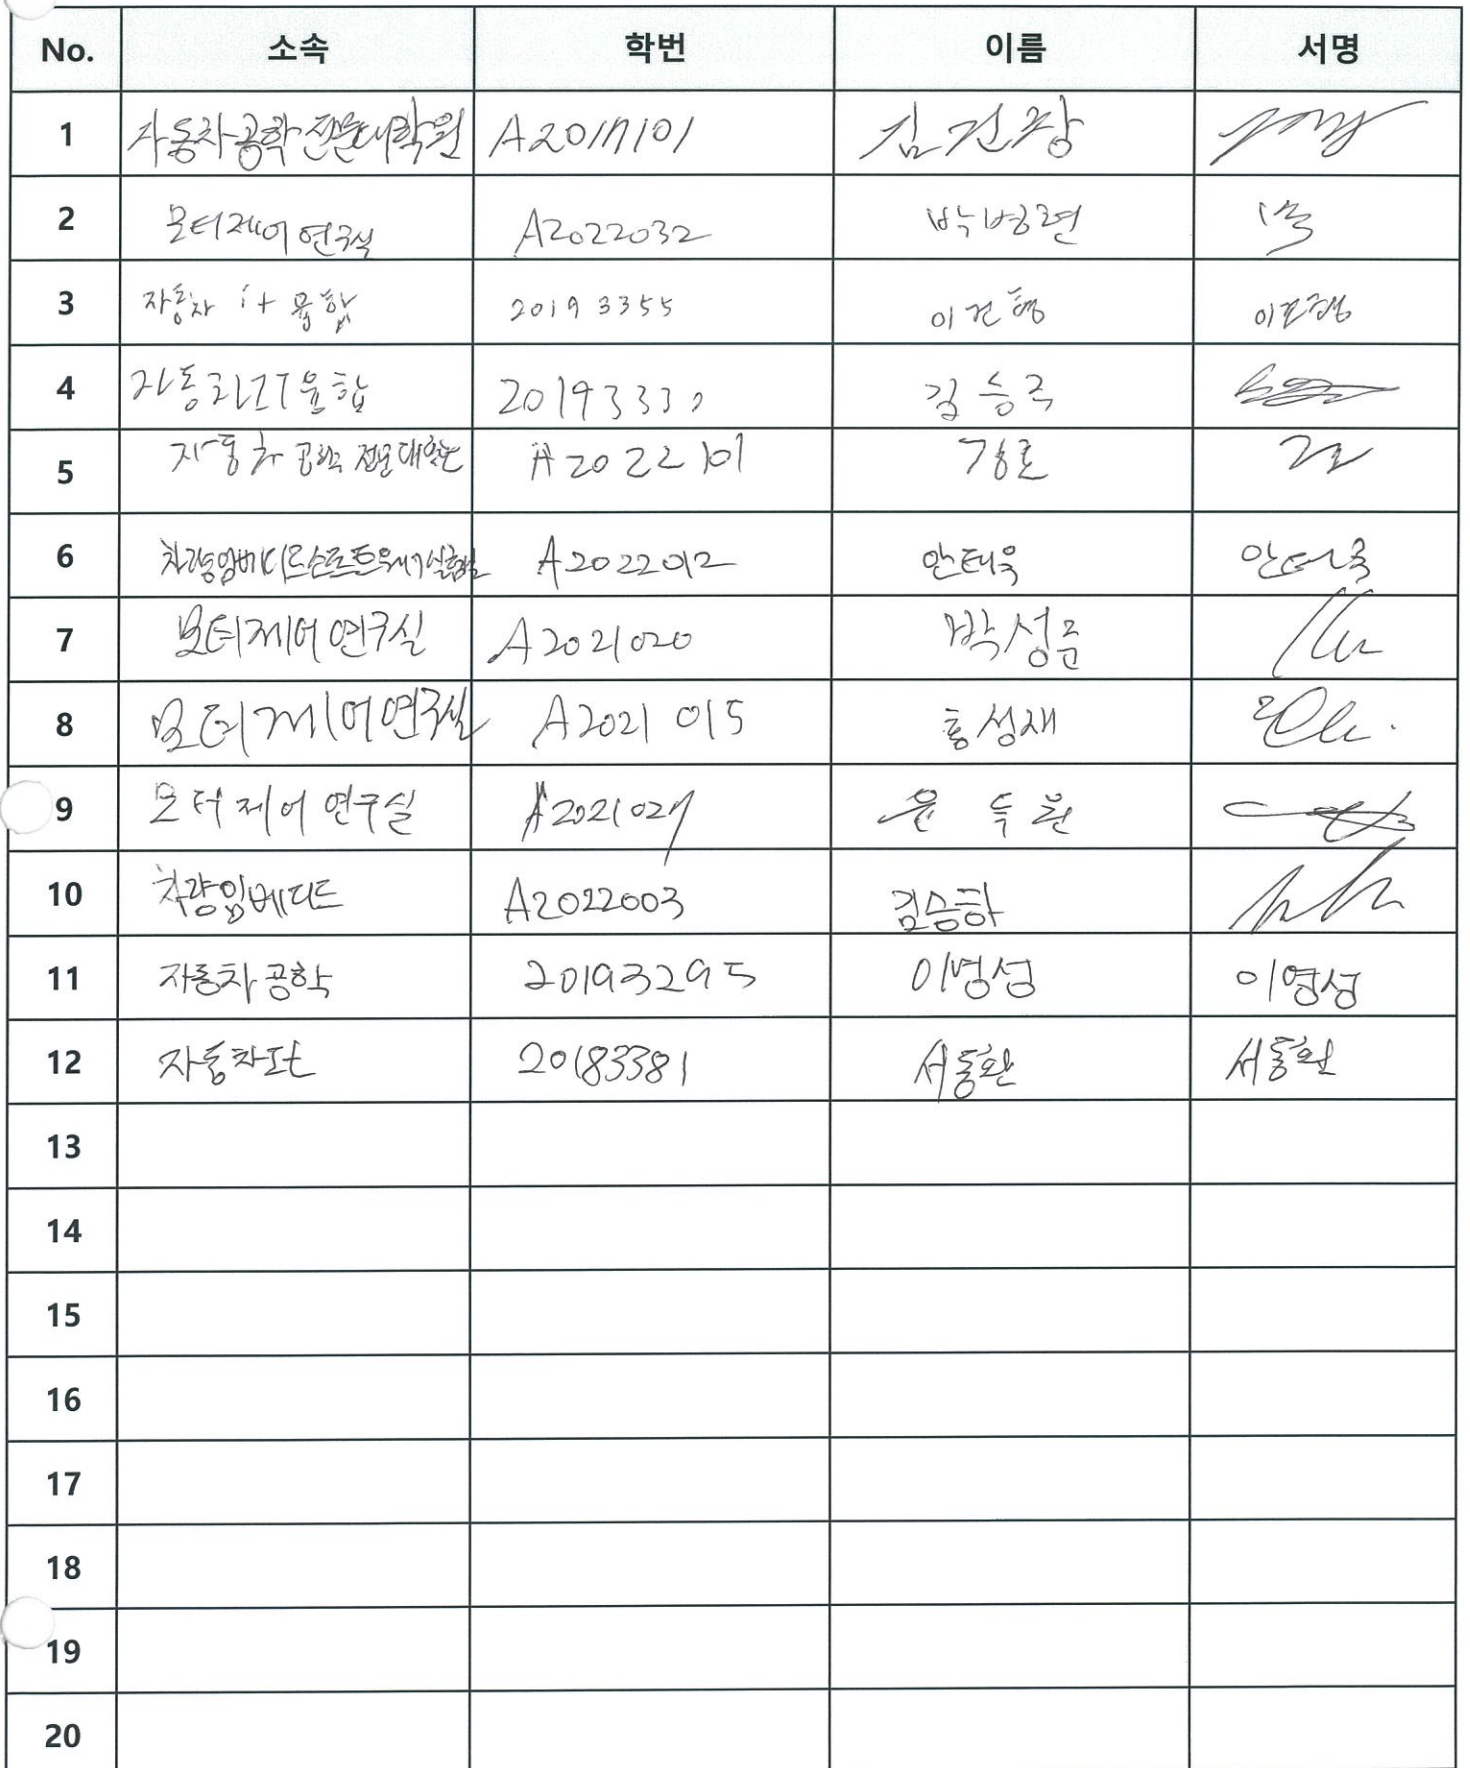 No. 소속 학번 이름 서명
1 자동차공학전문대학원 A2017101 김진광
2 모터제어연구실 A2022032 박병련
3 자동차 it 융합 20193355 이건형
4 자동차IT융합 2019333 김승주
5 자동차공학전문대학원 A2022101
6 차량임베디드소프트웨어실험실 A2022012 안태욱 안태욱
7 모터제어연구실 A2021020 박성문
8 모터제어연구실 A2021015 홍성재
9 모터제어연구실 A2021027 윤득원
10 차량임베디드 A2022003 김승하
11 자동차공학 20193295 이영성 이영성
12 자동차 20183381 서동환 서동환
13
14
15
16
17
18
19
20